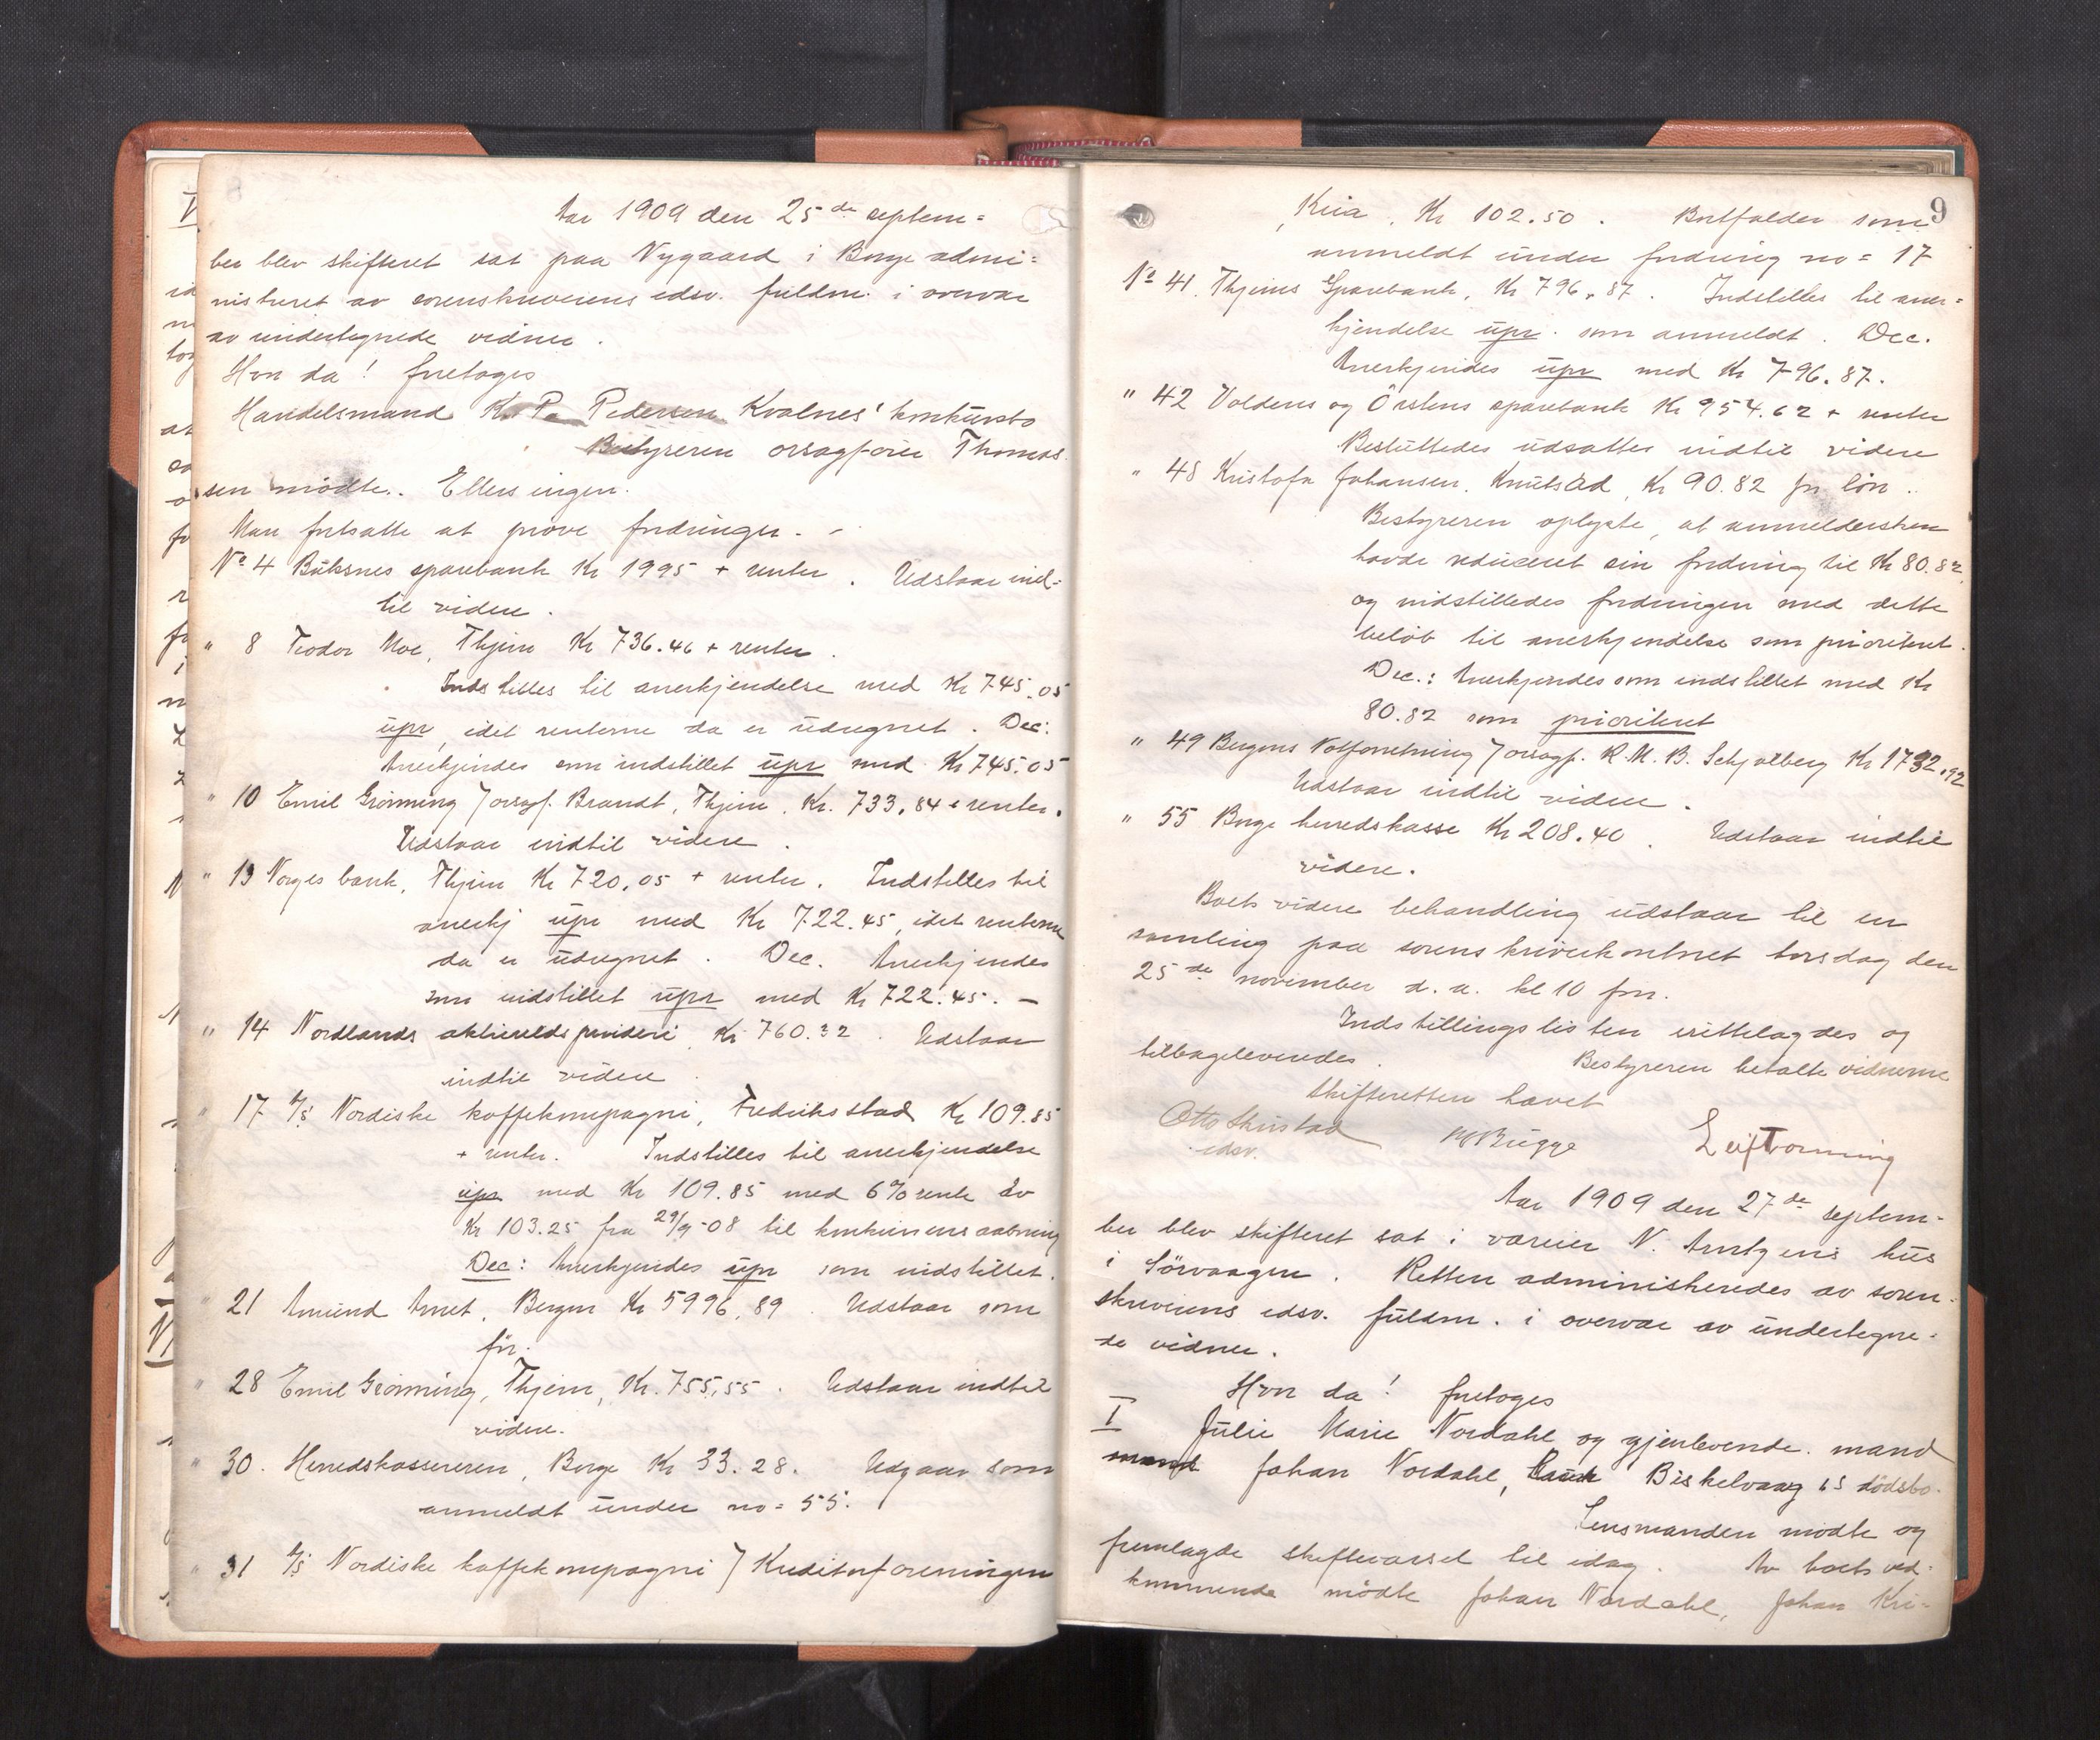 Aar 1909 den 25de septem=
ber blev skifteret sat paa Nygaard i Borge admi=
nistreret av sorenskriverens edsv. fuldm. i overvær
av undertegnede vidner.
Hvor da! foretoges
Handelsmand K. P. Pedersen Kvalnes' konkursbo
Bestyreren orsagfører Thomas
sen mødte. Ellers ingen.
Man fortsatte at prøve fordringer. -
No 4 Buksnes sparebank Kr 1995 + renter. Udstaar ind=
til videre.
" 8 Teodor Moe, Thjem Kr 736.46 + renter.
Indstilles til anerkjendelse med Kr 745.05
upr, idet renterne da er udregnet. Dec:
Anerkjendes som indstillet upr med Kr 745.05
" 10 Emil Grønning / orsagf. Brandt, Thjem, Kr. 733.84 + renter.
Udstaar indtil videre.
" 13 Norges bank, Thjem Kr 720.05 + renter. Indstilles til
anerkj upr med Kr 722.45, idet renterne
da er udregnet. Dec. Anerkjendes
som indstillet upr med Kr 722.45. -
" 14 Nordlands aktieuldspinderi, Kr 760.32. Udstaar
indtil videre
" 17 A/S Nordiske kaffekompagni, Fredriksstad Kr 109.85
+ renter. Indstilles til anerkjendelse
upr med Kr 109.85 med 6% rente av
Kr 103.25 fra 29/9-08 til konkursens aabning
Dec: Anerkjendes upr som indstillet.
" 21 Amund Arnet, Bergen Kr 5996.89. Udstaar som
før.
" 28 Emil Grønning, Thjem, Kr. 755,55. Udstaar indtil
videre.
" 30. Herredskassereren, Borge Kr 33.28. Udgaar som
anmeldt under no = 55.
" 31 A/S Nordiske kaffekompagni / Kreditorforeningen
9
Kria, Kr 102.50. Bortfalder som
anmeldt under fordring no = 17
No 41. Thjems Sparebank, Kr 796.87. Indstilles til aner=
kjendelse upr. som anmeldt. Dec.
Anerkjendes upr med Kr 796.87.
" 42 Voldens og Ørstens sparebank Kr 954.62 + renter
Besluttedes udsattes indtil videre
" 48 Kristofa Johansen, Knutstad, Kr 90.82 for løn.
Bestyreren oplyste, at anmeldersken
havde reduceret sin fordring til Kr 80.82,
og indstilledes fordringen med dette
beløb til anerkjendelse som prioriteret.
Dec.: Anerkjendes som indstillet med Kr
80.82 som prioriteret
" 49 Bergens Notforretning / orsagf. R. M. B. Schjølberg Kr 1732.92
Udstaar indtil videre.
" 55 Borge herredskasse Kr 208.40. Udstaar indtil
videre.
Boets videre behandling udstaar til en
samling paa sorenskriverkontoret torsdag den
25de november d. a. kl 10 fm.
Indstillingslisten irettelagdes og
tilbageleveredes. Bestyreren betalte vidnerne
Skifteretten hævet
Otto Skirstad
edsv.
Bugge
Leif
Aar 1909 den 27de septem-
ber blev skifteret sat i væreier N. Arntzens hus
i Sørvaagen. Retten administreredes av soren-
skriverens edsv. fuldm. i overvær av undertegne-
de vidner.
Hvor da! foretoges
I Julie Marie Nordahl og gjenlevende mand
mand Johan Nordahl, Biskelvaag's dødsbo.
Lensmanden mødte og
fremlagde skiftevarsel til idag. Av boets ved-
kommende mødte Johan Nordahl, Johan Kri-